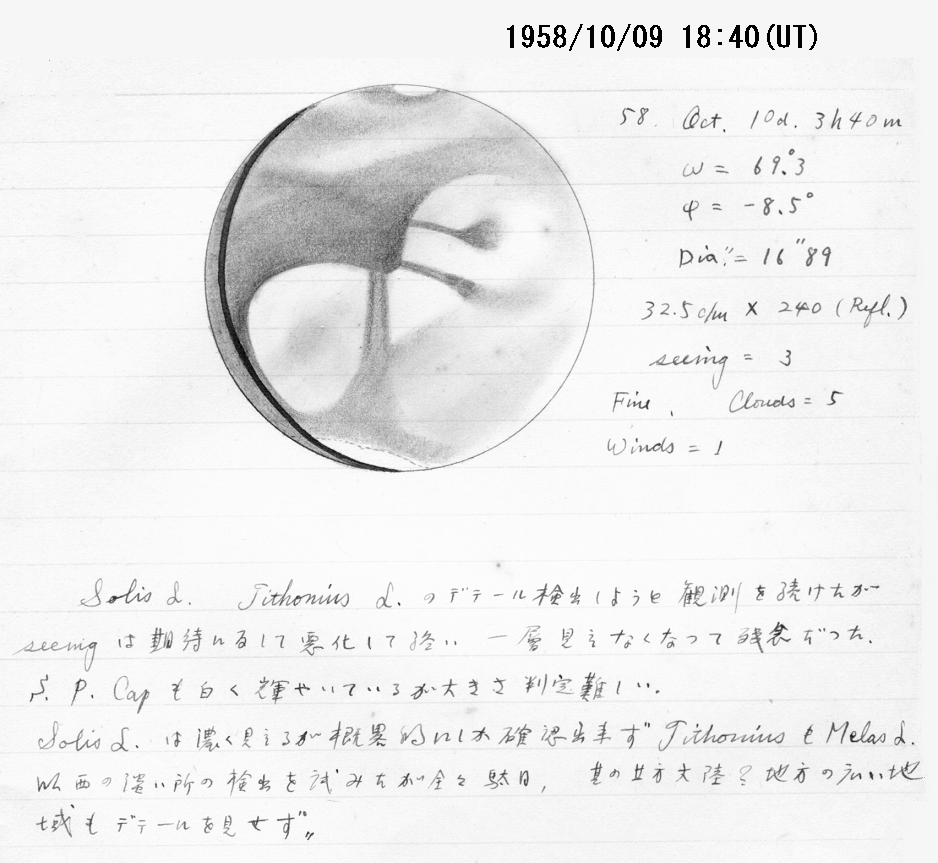 1958/10/09 18:40(UT)
58. Oct. 10d. 3h40m
ω = 69.°3
φ = -8.5°
Dia." = 16"89
32.5c/m × 240 (Refl.)
seeing = 3
Fine, Clouds = 5
Winds = 1
Solis L. Tithonius L. のデテール検出しようと観測を続けたが
seeing は期待に反して悪化して終い 一層見えなくなって残念だった.
S. P. Cap も白く輝やいているが大きさ判定難しい.
Solis L. は濃く見えるが概略的にしか確認出来ず Tithonius も Melas L.
以西の濃い所の検出を試みたが全々駄目, 其の 大陸 地方の広い地
域もデテールを見せず〃